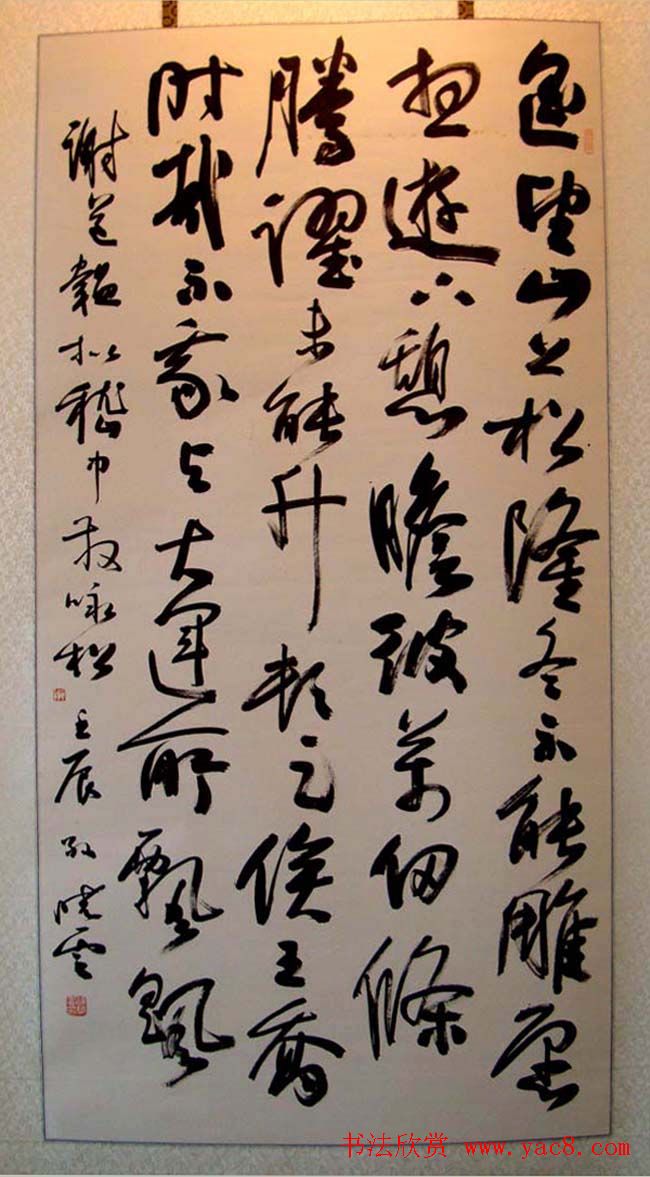 遥望山上松隆冬不能雕愿
想遊下憩瞻彼萬仞條
騰躍未能升頓足俟王喬
时哉不我与大運所飄飖
謝道韞拟嵇中散咏松 壬辰 孙晓云
书法欣赏 www.yac8.com